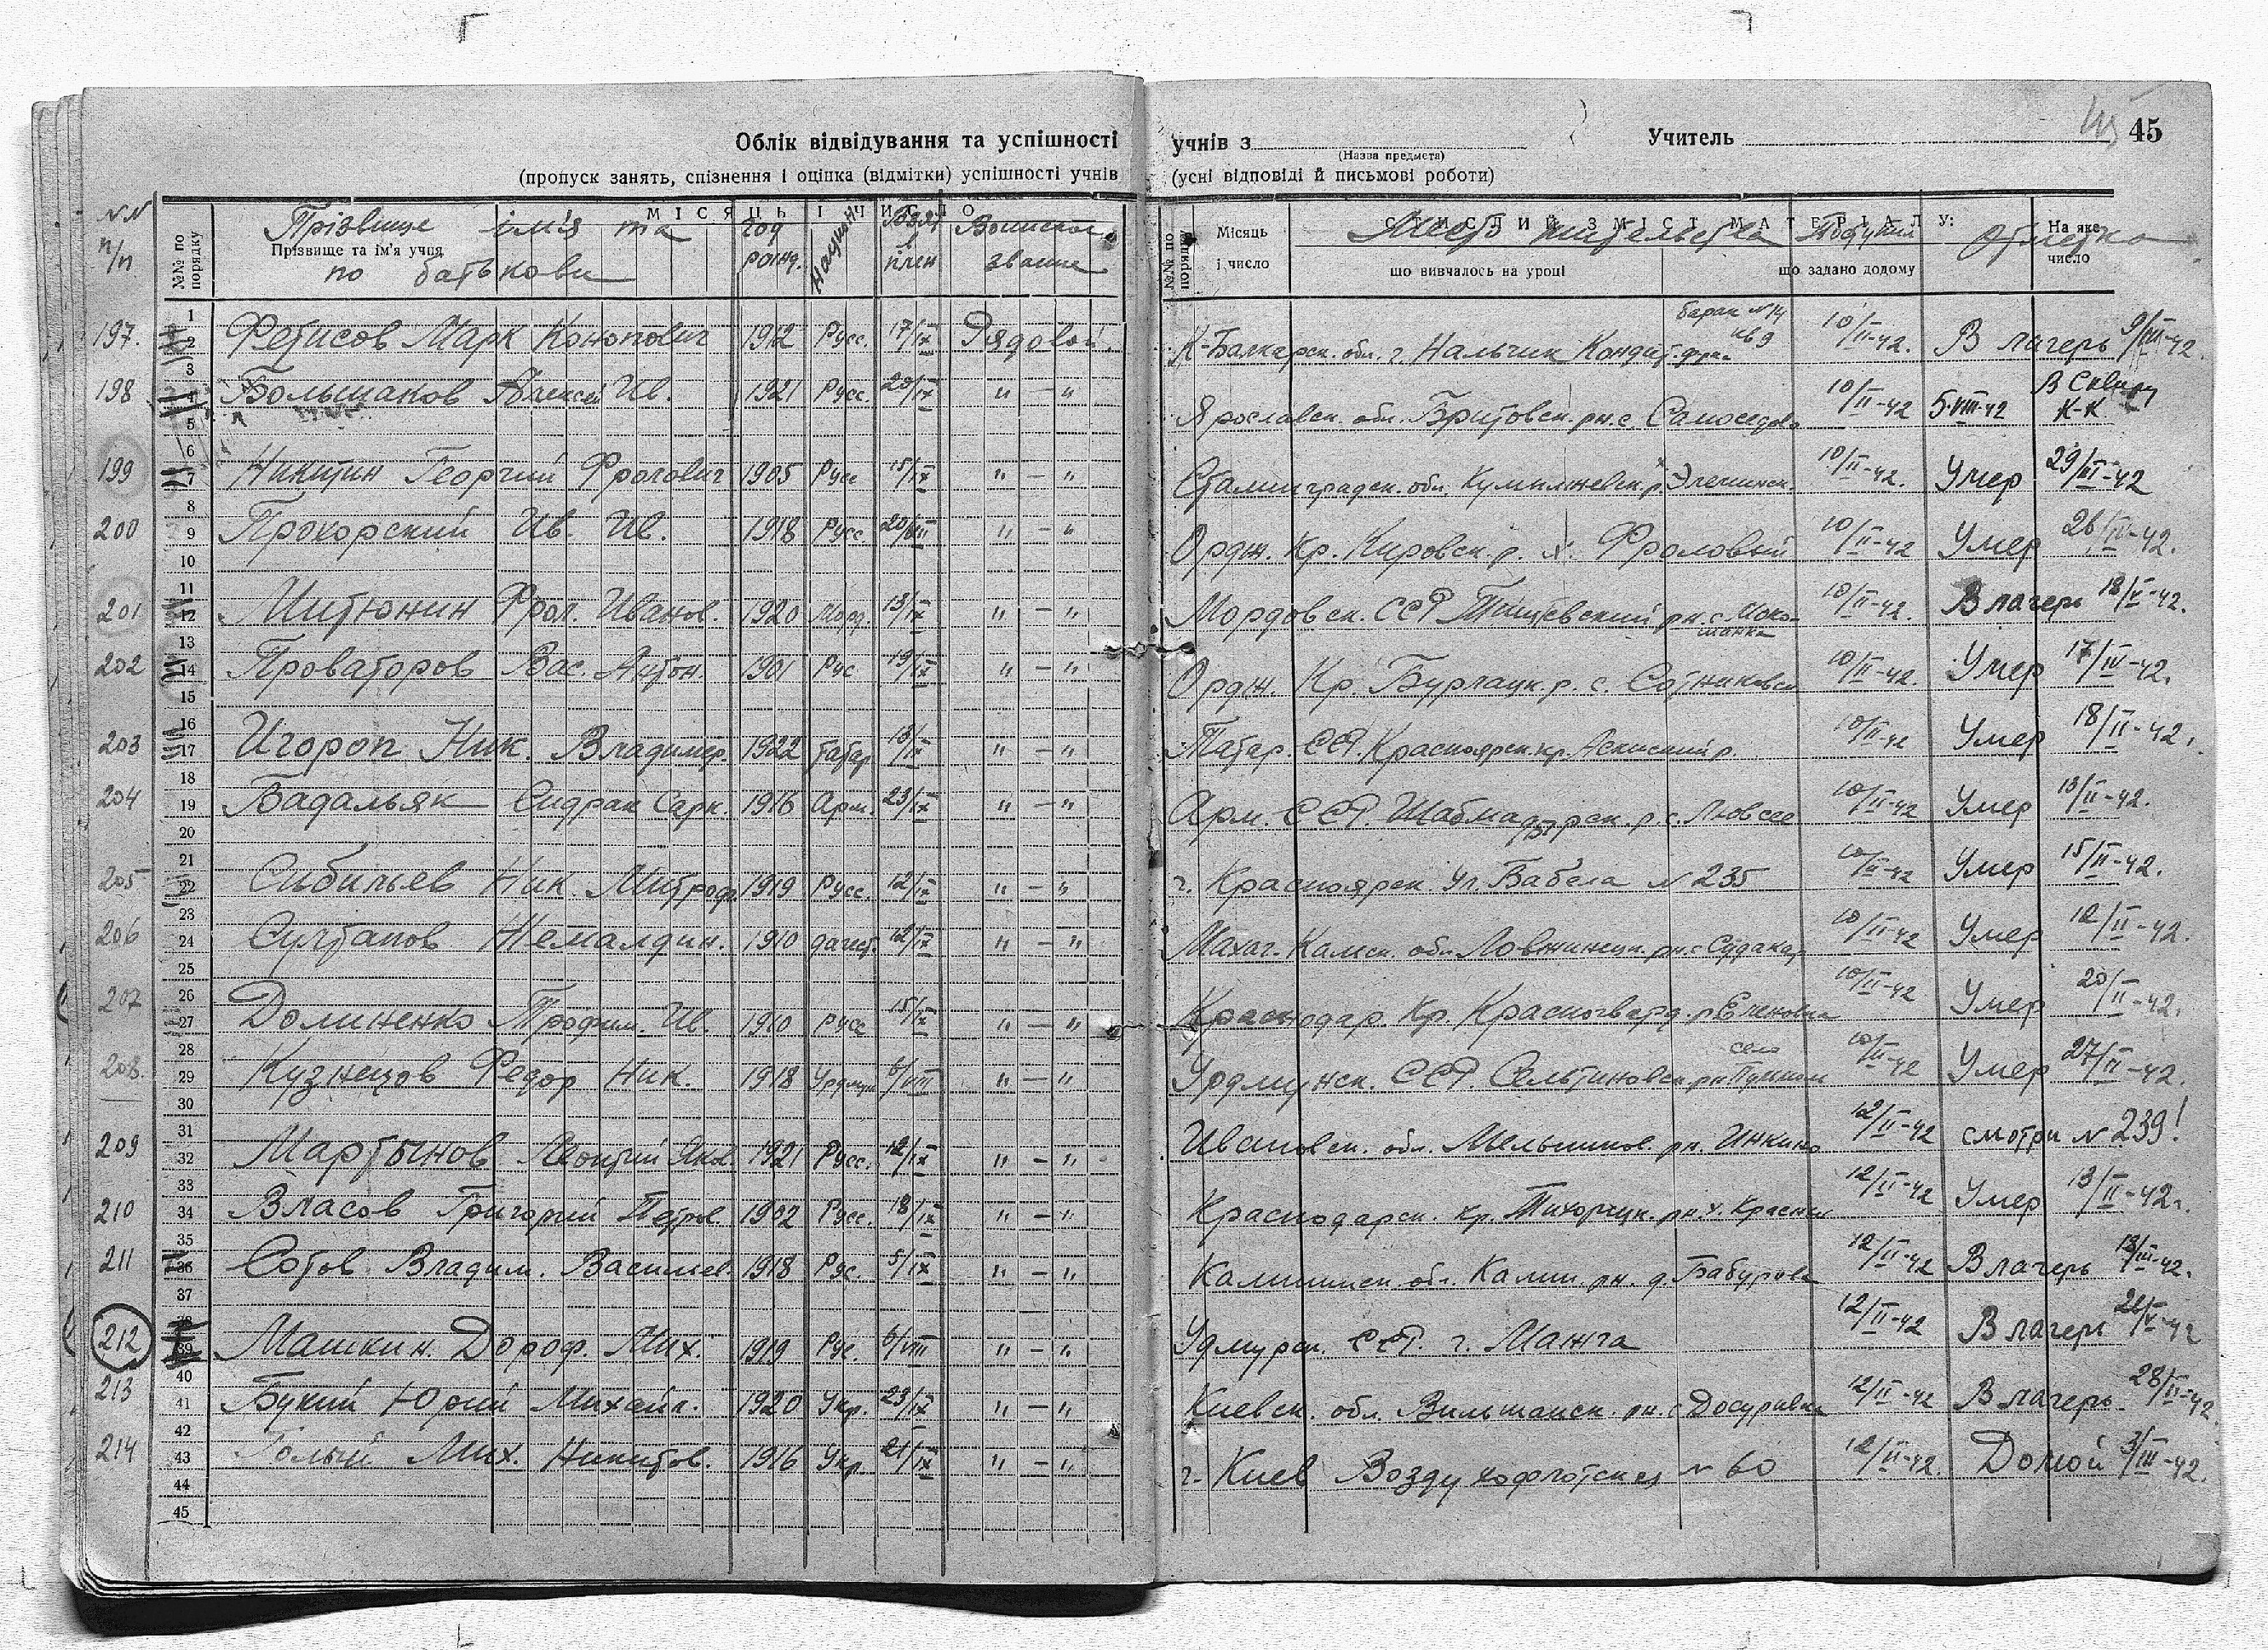 45
Облік відвідування та успішності учнів з Учитель
(Назва предмета)
(пропуск занять, спізнення і оцінка (відмітки) успішності учнів (усні відповіді й письмові роботи)
№№ п/п
№№ по порядку
Прізвище ім'я та
Прізвище та ім'я учня
по батькови
МІСЯЦЬ І ЧИСЛО
Год рожд.
Национ
Взят в плен
Воинское звание
№№ по порядку
Місяць і число
СТИСЛИЙ ЗМІСТ МАТЕРІАЛУ:
що вивчалось на уроці
що задано додому
На яке число
Место жительства
Отметка
197. Фетисов Марк 1912 Русс. 17/IX Рядовой. К-Балкарск. обл. г. Нальчик барак №14 кв 9 10/II-42. В лагерь 9/III-42.
198 Большаков Алексей Ив. 1921 Русс. 20/IX " — " Ярославск. обл. рн. с 10/II-42 5-VIII-42 К-К
199 Никитин Георгий Фролович 1905 Русс 15/IX " — " Сталинградск. обл. 10/II-42. Умер 29/III-42
200 Прокорский Ив. Ив. 1918 Русс. 20/VIII " — " Ордж. Кр. Кировск. р. х. Фроловый 10/II-42 Умер 26/II-42.
201 Митюнин Фрол. Иванов. 1920 Морд. 13/IX " — " Мордовск. ССР рн. с 10/II-42. В лагерь 18/V-42.
202 Проваторов Вас. Антон. 1901 Рус 19/IX " — " Ордж. Кр. Бурлацк. р. с. 10/II-42. Умер 17/IV-42.
203 Игороп Ник. Владимер. 1922 татар 13/IX " — " Татар. ССР. Красноярск. кр. 10/II-42 Умер 18/II-42.
204 Бадальяк Сидрак Сарк. 1916 Арм. 23/IX " — " Арм. ССР. р. с. 10/II-42 Умер 13/II-42.
205 Сибильев Ник. Митроф. 1919 Русс. 12/IX " — " г. Красноярск ул. Бабела № 235 10/II-42 Умер 15/II-42.
206 Султанов Немалдин. 1910 дагест. 12/IX " — " Махаг. обл. рн. с 10/II-42 Умер 12/II-42.
207 Долиненко Трофим. Ив. 1910 русс 15/IX " — " Краснодар. Кр. Красногвард. р Еленовка 10/II-42 Умер 20/II-42.
208. Кузнецов Федор Ник. 1918 6/VIII " — " ССР село 10/II-42 Умер 27/II-42.
209 Мартынов Яков. 1921 Русс. 12/IX " — " Ивановск. обл. рн. Инкино 12/II-42 смотри № 239!
210 Власов Григорий Петров. 1902 Русс. 18/IX " — " Краснодарск. кр. Тихорецк. рн. х. 12/II-42 Умер 13/II-42г.
211 Сотов Владим. Васильев. 1918 Рус. 5/IX " — " Калининск. обл. Калин. рн. д. Бабурова 12/II-42 В лагерь 13/III-42.
212 Машкин Дороф. Мих. 1919 Рус. 6/VIII " — " Удмурск. ССР. г. Манга 12/II-42 В лагерь
213 Букий Юрий Михайл. 1920 Укр. 23/IX " — " Киевск. обл. Вильшанск. рн. с 12/II-42 В лагерь 28/II-42.
214 Голый Мих. Никитов. 1916 Укр. 21/IX " — " г. Киев Воздухофлотская № 60 12/II-42. Домой 3/III-42.
1
2
3
4
5
6
7
8
9
10
11
12
13
14
15
16
17
18
19
20
21
22
23
24
25
26
27
28
29
30
31
32
33
34
35
36
37
38
39
40
41
42
43
44
45